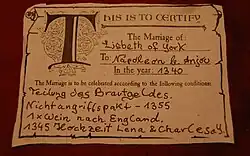 THIS IS TO CERTIFY
The Marriage of:
Lisbeth of York
To: Napoleon b. Anjou
In the year: 1340
The Marriage is to be celebrated according to the following conditions:
Teilung des Brautgeldes.
Nichtangriffspakt - 1355
1x Wein nach England.
1345 Hochzeit Lena & Charles